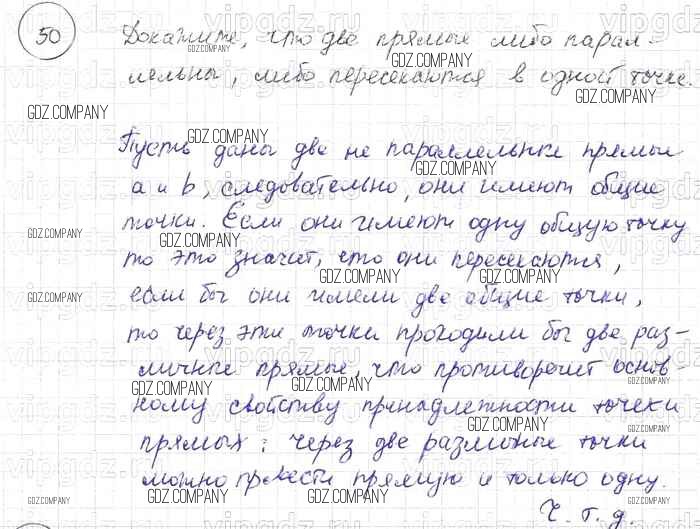 50 Докажите, что две прямые либо парал-
лельны, либо пересекаются в одной точке.
Пусть даны две не параллельные прямые
а и b, следовательно, они имеют общие
точки. Если они имеют одну общую точку
то это значит, что они пересекаются,
если бы они имели две общие точки,
то через эти точки проходили бы две раз-
личные прямые, что противоречит основ-
ному свойству принадлежности точек и
прямых: через две различные точки
можно провести прямую и только одну.
Ч. т. д.